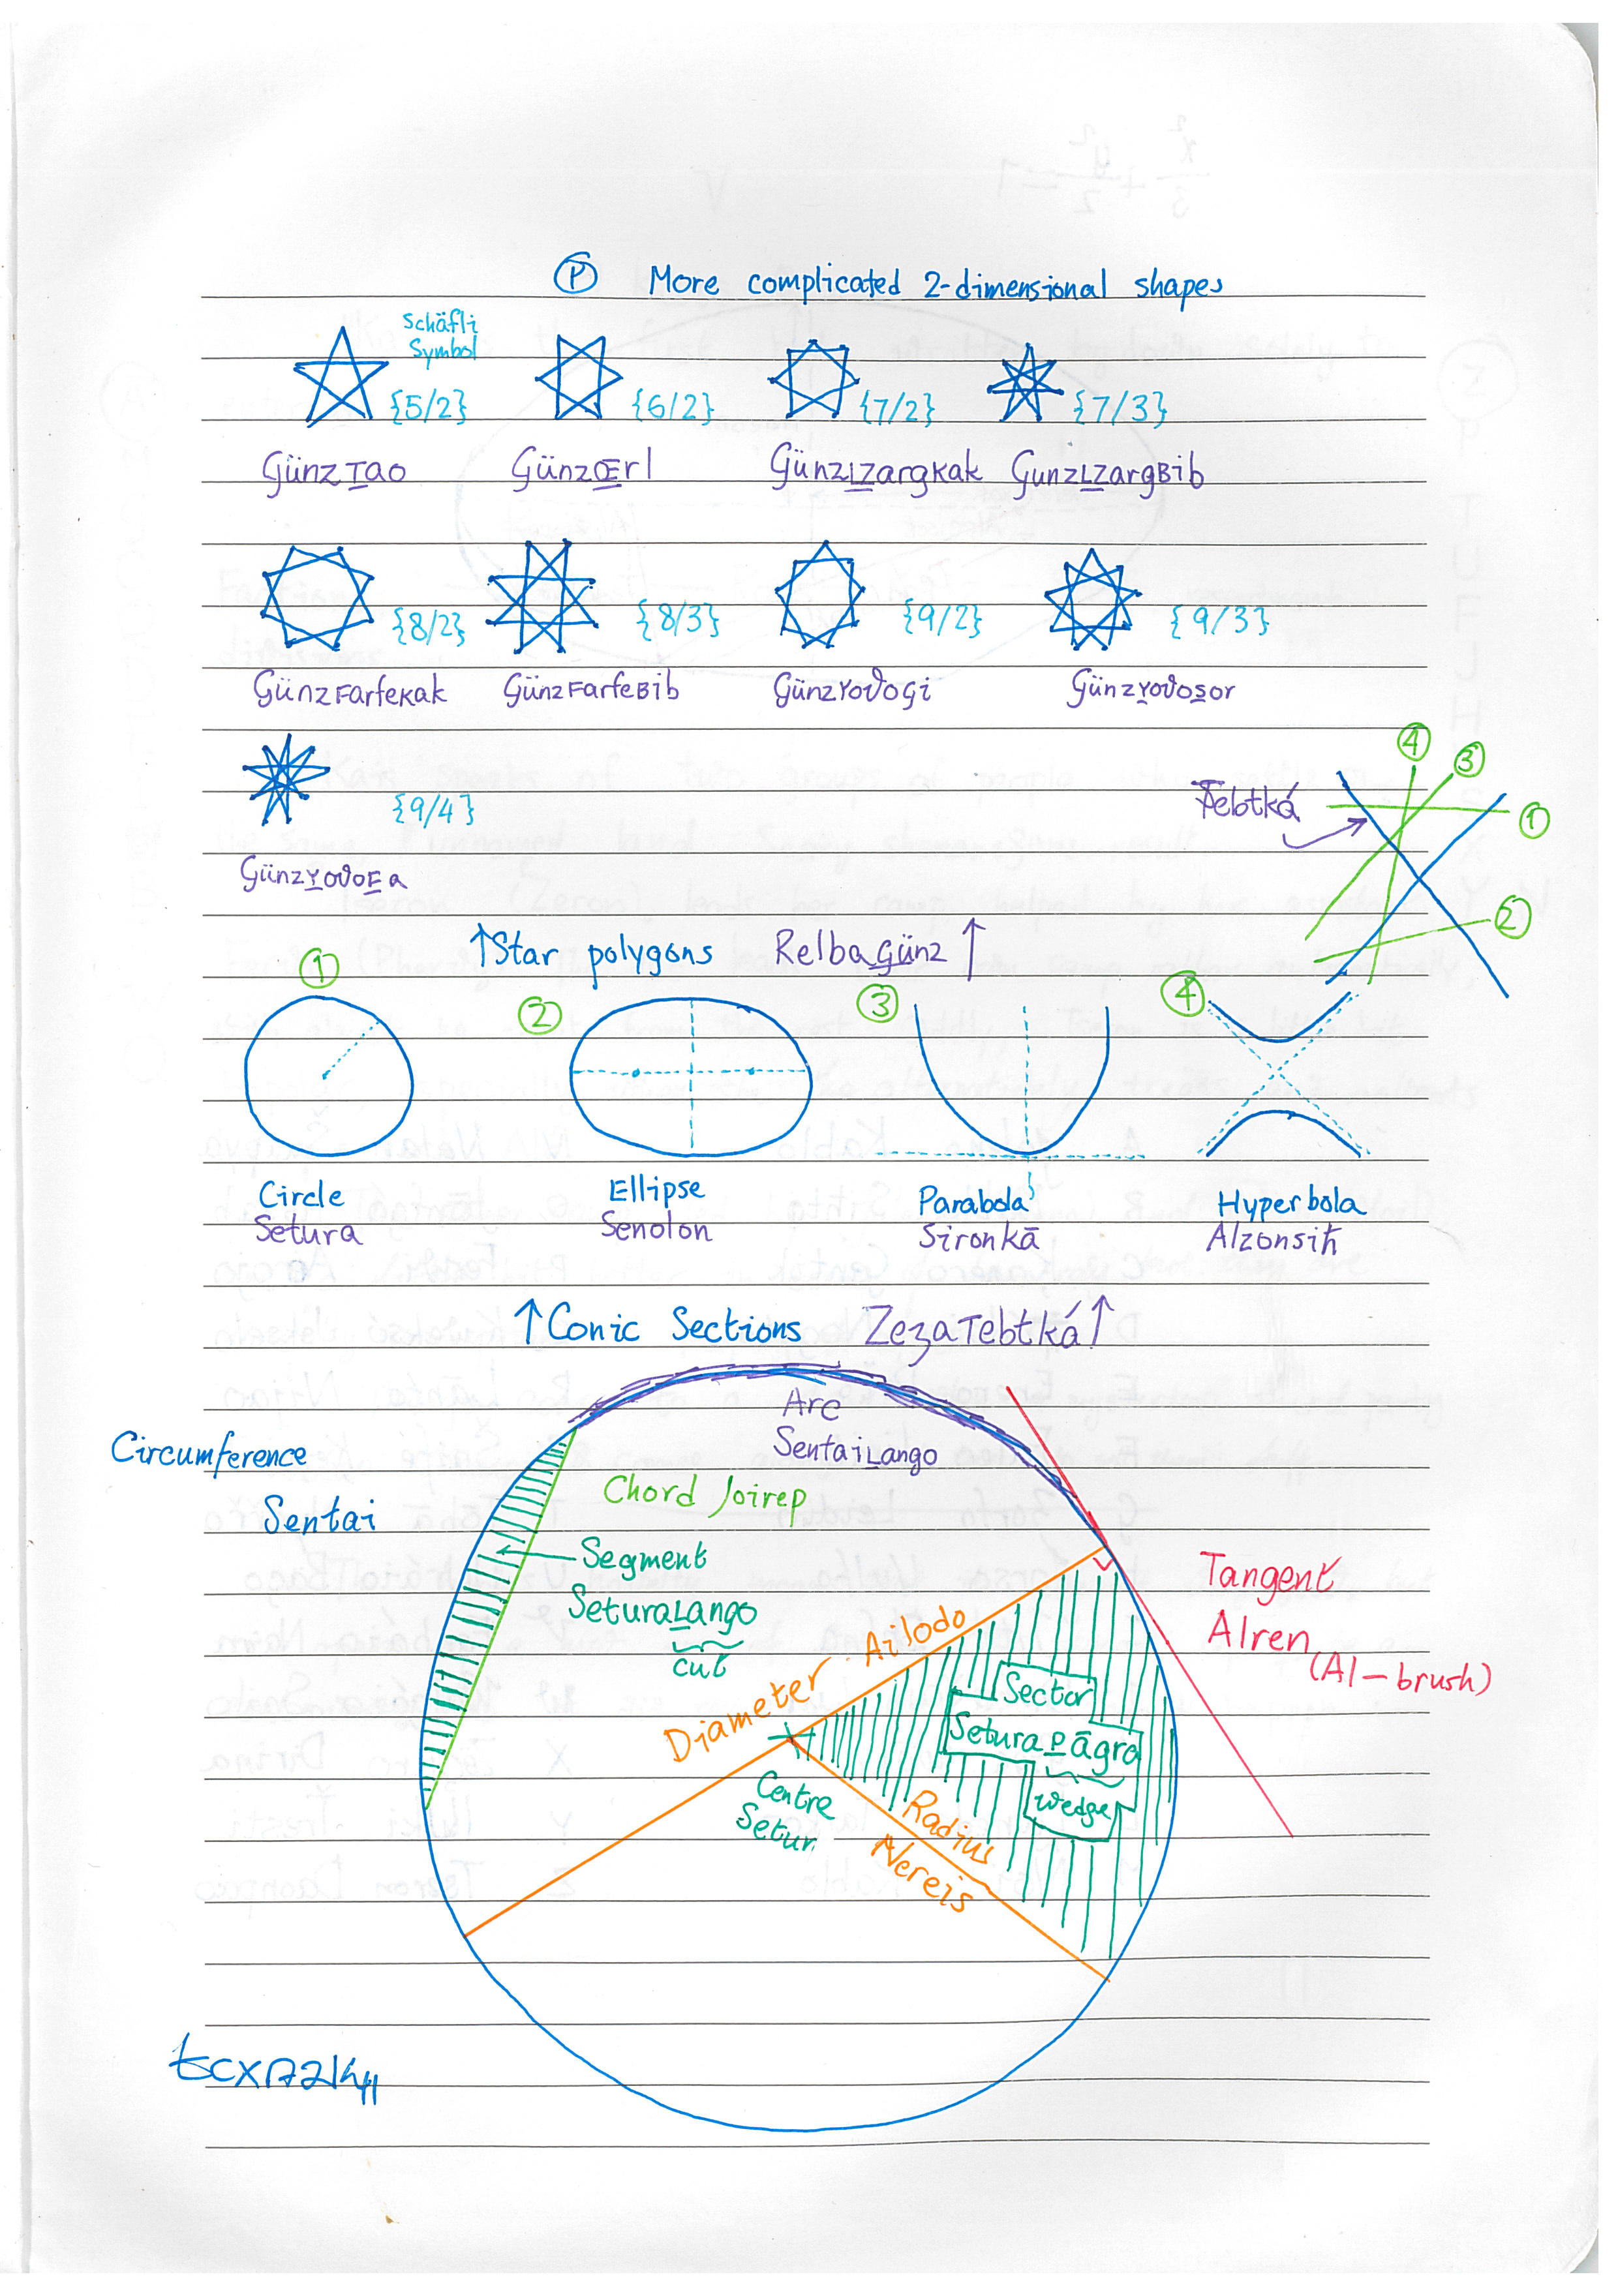 Ⓟ More complicated 2-dimensional shapes
Schäfli
Symbol
{5/2} {6/2} {7/2} {7/3}
GünzTao GünzŒrl GünzIZargKak GunzIZargBib
{8/2} {8/3} {9/2} {9/3}
GünzFarfeKak GünzFarfeBib
④ ③
Tebtká
①
{9/4}
②
↑Star polygons RelbaGünz↑
① ② ③ ④
Circle Ellipse Parabola Hyperbola
Setura Senolon Sironkā
↑Conic Sections ZezaTebtká↑
Arc
SentaiLango
Circumference
Sentai
Chord Joirep
Segment
SeturaLango
cut
Tangent
Alren
(Al-brush)
Diameter Ailodo
Sector
SeturaPāgra
Wedge
Centre
Setur
Radius
Nereis